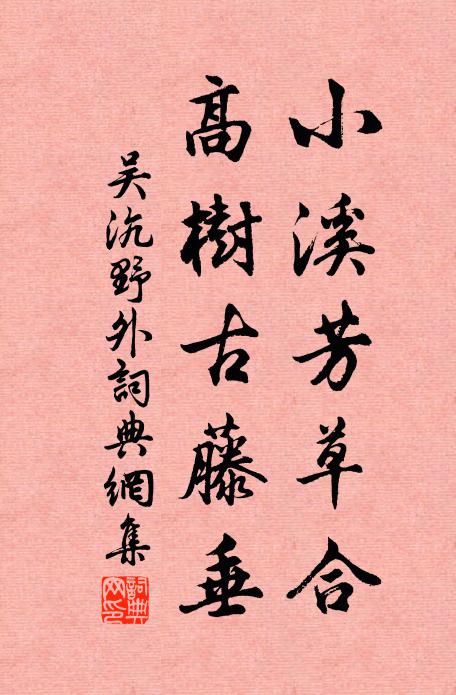 小溪芳草合
高樹古藤垂
吴沆野外詞典網集
詞典網印